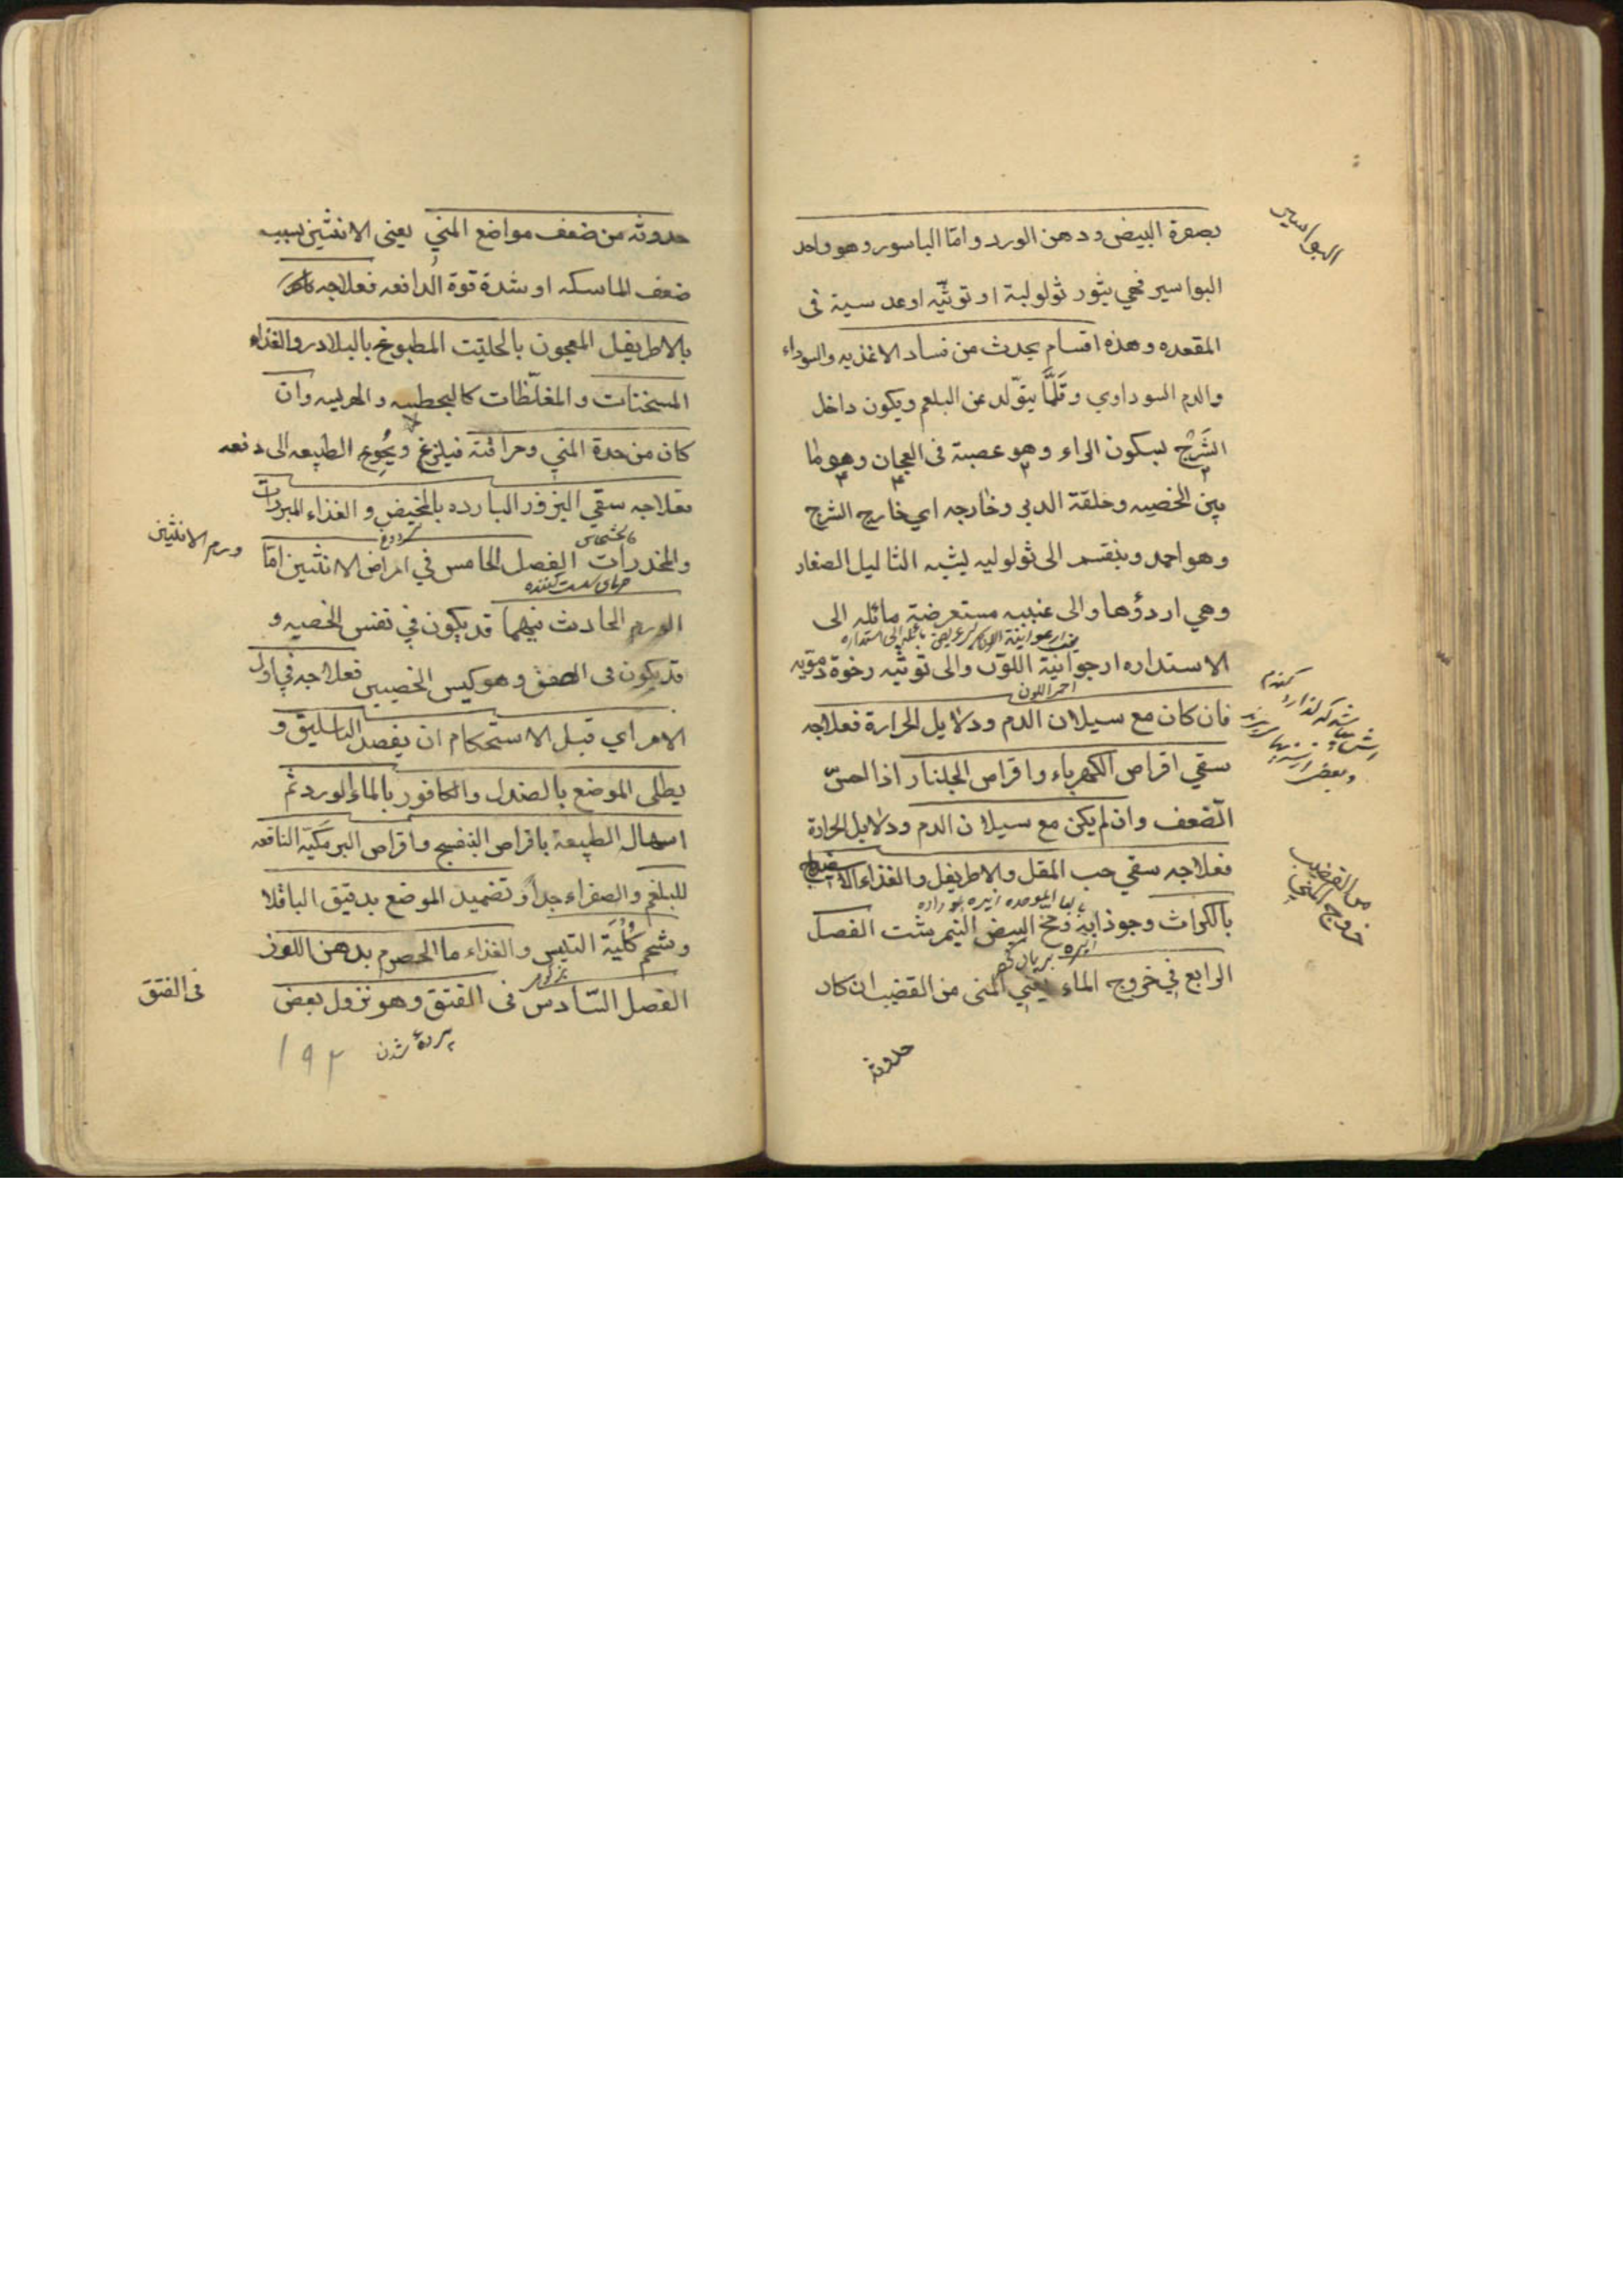 البواسير
بصفرة البيض ودهن الورد وامّا الباسور وهو واحد
البواسير فهي بثور ثولولية او توثيّه او عدسية فى
المقعده وهذه اقسام يحدث من فساد الاغذيه والسوداء
والدم السوداوي وقَلَّمَا يتوّلد عن البلغم ويكون داخل
الشَرْج بسكون الراء وهو عصبة فى العجان وهو لما
بين الخصيه وحلقة الدبر وخارجه اي خارج الشرج
وهو احمد وينقسم الى ثولوليه يشبه الثاليل الصغار
وهي اردؤها والى عنبيه مستعرضة مائله الى
الاستداره ارجوانية اللوّن والى توثيه رخوة دمويه
احمر اللون
فان كان مع سيلان الدم ودلايل الحرارة فعلاجه
سقي اقراص الكهرباء واقراص الجلنار اذا احسّ
الضعف وان لم يكن مع سيلان الدم ودلايل الحرارة
فعلاجه سقي حب المقل والاطريفل والغذاء الاسفيداج
بالكراث وجوذابه ومخ البيض النيمرشت الفصل
الرابع في خروج الماء يعني المنى من القضيب ان كان
خروج المني
من القضيب
حدوثه
حدوثه من ضعف مواضع المني يعنى الانثيين بسبب
ضعف الماسكه او شدة قوة الدافعه فعلاجه
بالاطريفل المعجون بالحلتيت المطبوخ بالبلادر والغذاء
المسخنات والمغلّظات كالبحطيه والهريسه وان
كان من حدة المني وحرافته فيلزغ ويُحَوِج الطبيعه الى دفعه
فعلاجه سقي البزور البارده بالمخيض والغذاء المبردات
كالخشخاش
والمخدرات الفصل الخامس في امراض الانثيين امّا
ورم الانثيين
الورم الحادث فيهما قد يكون في نفس الخصيه و
قد يكون فى الصفن وهو كيس الخصيين فعلاجه في اول
الامر اي قبل الاستحكام ان يفصد الباسليق و
يطلى الموضع بالصندل والكافور بالماء الورد ثم
اسهال الطبيعة باقراص البنفسج واقراص البرمكيّة النافعه
للبلغم والصفراء جداً وتضميد الموضع بدقيق الباقلا
وشحم كُلْيَة التيس والغذاء ما الحصرم بدهن اللوز
الفصل السّادس فى الفتق وهو نزول بعض
فى الفتق
١٩٢